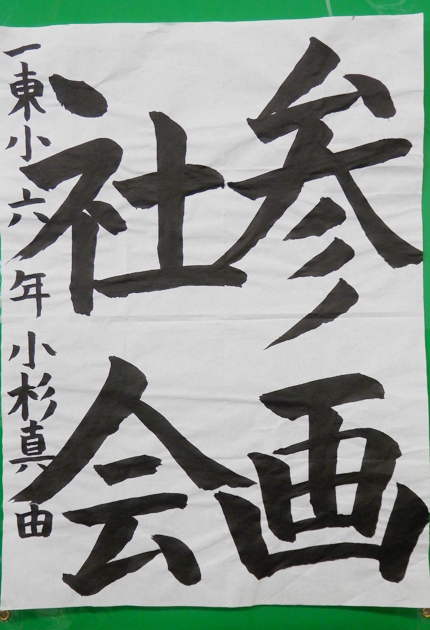 参画
社会
一東小六年小杉真由